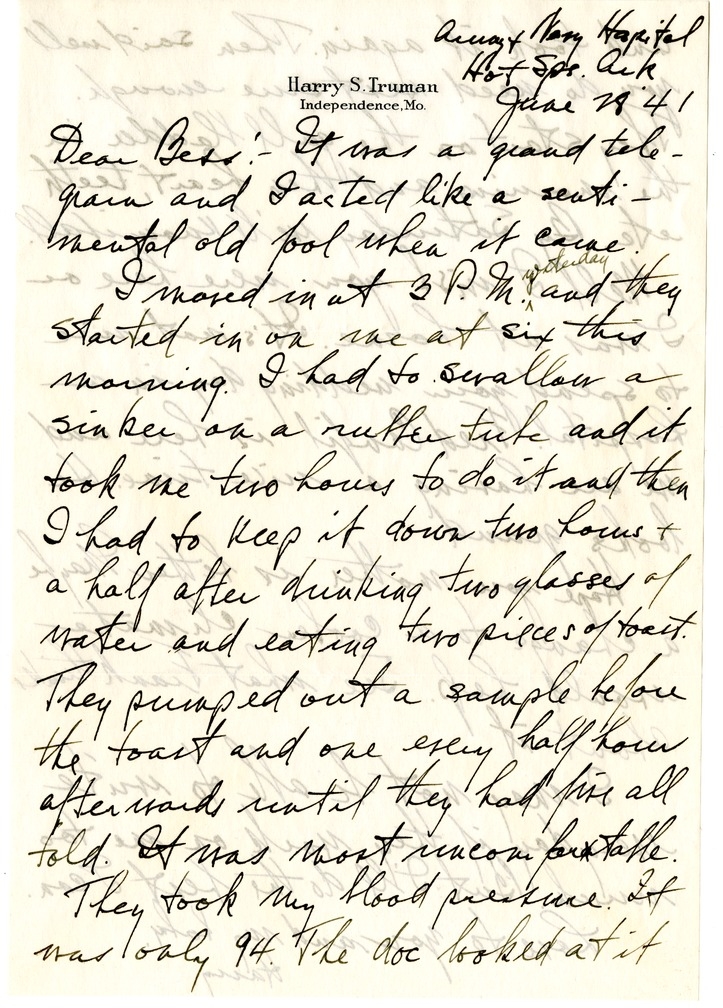 Army & Navy Hospital
Hot Sps. Ark
Harry S. Truman
Independence, Mo.
June 28 '41
Dear Bess:- It was a grand tele-
gram and I acted like a senti-
mental old fool when it came.
I moved in at 3 P.M. yesterday and they
started in on me at six this
morning. I had to swallow a
sinker on a rubber tube and it
took me two hours to do it and then
I had to keep it down two hours +
a half after drinking two glasses of
water and eating two pieces of toast.
They pumped out a sample before
the toast and one every half hour
afterwards until they had five all
told. It was most uncomfortable.
They took my blood pressure. It
was only 94. The doc looked at it